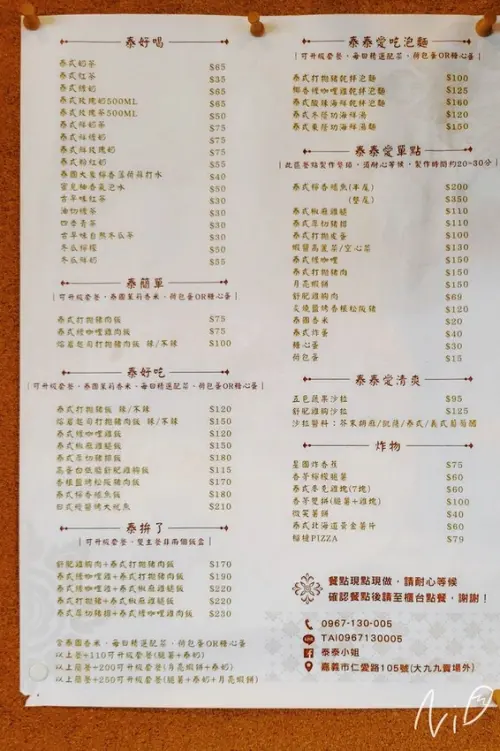 泰好喝
泰式奶茶 $65
泰式紅茶 $35
泰式綠奶 $65
泰式玫瑰奶500ML $65
泰式玫瑰茶500ML $50
泰式鮮奶茶 $75
泰式鮮綠奶 $75
泰式鮮玫瑰奶 $75
泰式粉紅奶 $55
泰國大象檸香菠荷蘇打水 $40
蜜見柚香氣泡水 $50
古早味紅茶 $30
油切綠茶 $30
四季青茶 $30
古早味自然冬瓜茶 $30
冬瓜檸檬 $50
冬瓜鮮奶 $55
泰簡單
|可升級套餐-泰國茉莉香米、荷包蛋OR糖心蛋|
泰式打拋豬肉飯 $75
泰式綠咖哩雞肉飯 $75
熔岩起司打拋豬肉飯 辣/不辣 $100
泰好吃
|可升級套餐-泰國茉莉香米、每日精選配菜、荷包蛋OR糖心蛋|
泰式打拋豬肉飯 辣/不辣 $120
熔岩起司打拋豬肉飯 辣/不辣 $150
泰式綠咖哩雞飯 $120
泰式椒麻雞腿飯 $150
泰式厚切豬排飯 $180
高蛋白低脂舒肥雞胸飯 $115
香根鹽烤松阪豬肉飯 $170
泰式檸香鱸魚飯 $180
日式蛟鹽烤大虱魚 $210
泰拚了
|可升級套餐、雙主餐非兩個飯盒|
舒肥雞胸肉+泰式打拋豬肉飯 $170
泰式綠咖哩雞+泰式打拋豬肉飯 $190
泰式綠咖哩雞+泰式椒麻雞腿飯 $220
泰式打拋豬+泰式椒麻雞腿飯 $220
泰式厚切豬排+泰式綠咖哩雞飯 $230
含泰國香米、每日精選配菜、荷包蛋OR糖心蛋
以上餐+110可升級套餐(腿薯+泰奶)
以上餐+200可升級套餐(月亮蝦餅+泰奶)
以上餐+250可升級套餐(腿薯+泰奶+月亮蝦餅)
泰泰愛吃泡麵
|可升級套餐、每日精選配菜、荷包蛋OR糖心蛋|
泰式打拋豬乾拌泡麵 $100
椰香綠咖哩雞乾拌泡麵 $125
泰式酸辣海鮮乾拌泡麵 $160
泰式冬蔭功海鮮湯 $120
泰式東蔭功海鮮湯麵 $150
泰泰愛單點
|此區餐點製作繁瑣、須耐心等候、製作時間約20~30分|
泰式檸香鱸魚(半尾) $200
(整尾) $350
泰式椒麻雞腿 $110
泰式厚切豬排 $110
泰式打拋皮蛋 $100
蝦醬高麗菜/空心菜 $130
泰式綠咖哩 $150
泰式打拋豬肉 $150
月亮蝦餅 $150
舒肥雞胸肉 $69
炙燒鹽烤香根松阪豬 $120
泰國香米 $20
泰式炸蛋 $40
糖心蛋 $30
荷包蛋 $15
泰泰愛清爽
五色蔬菜沙拉 $95
舒肥雞胸沙拉 $125
沙拉醬料：芥末胡麻/凱薩/泰式/義式葡萄醋
炸物
星國炸香蕉 $75
香芋檸檬腿薯 $60
泰式麥克雞塊(7塊) $60
香芋雙拼(腿薯+雞塊) $100
微笑薯餅 $40
泰式北海道黃金薯片 $60
榴槤PIZZA $79
餐點現點現做，請耐心等候
確認餐點後請至櫃台點餐，謝謝！
0967-130-005
TAI0967130005
泰泰小姐
嘉義市仁愛路105號(大九九賣場外)